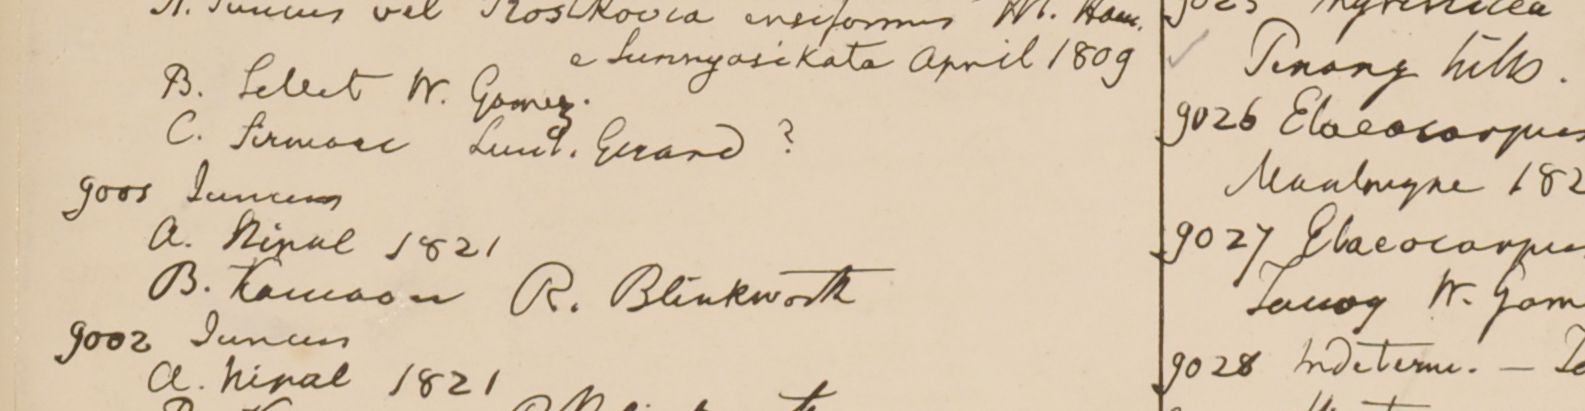 A. Juncus vel Rostkovia ensiformis Ht. Ham.
e Sunnyasikata April 1809
B. Sillet W. Gomez.
C. Sirmore Lieut. Gerard ?
9001 Juncus
A. Nipal 1821
B. Kamaon R. Blinkworth
9002 Juncus
A. Nipal 1821
9025
Penang hills.
9026 Elaeocarpus
Maulmyne 182
9027 Elaeocarpus
Tavoy W. Gom
9028 Indeterm. –